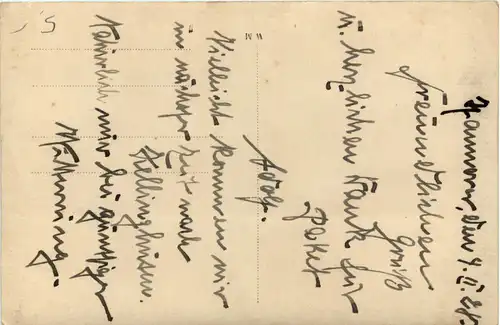 Hannover, den 9.II.25.
Freundlichen
Gruß
u. herzlichen Dank für
Paket
Adolf.
Vielleicht kommen wir
in nächster Zeit nach
Kellinghusen.
Natürlich nur bei günstiger
Witterung.
W M